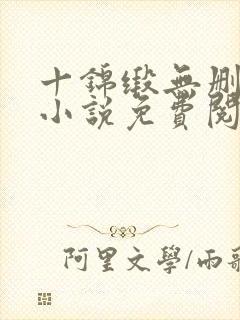 十錦緞無刪
小說免費閱
阿里文學/雨